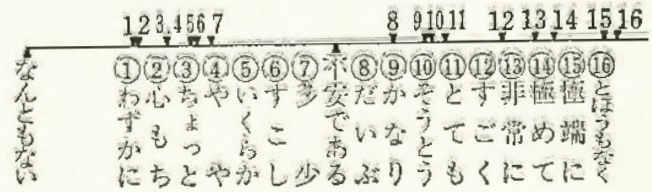 12 3 4 56 7 8 9 10 11 12 13 14 15 16
なんともない
①わずかに
②心もち
③ちょっと
④やや
⑤いくらか
⑥すこし
⑦多少
不安である
⑧だいぶ
⑨かなり
⑩そうとう
⑪とても
⑫すごく
⑬非常に
⑭極めて
⑮極端に
⑯とほうもなく